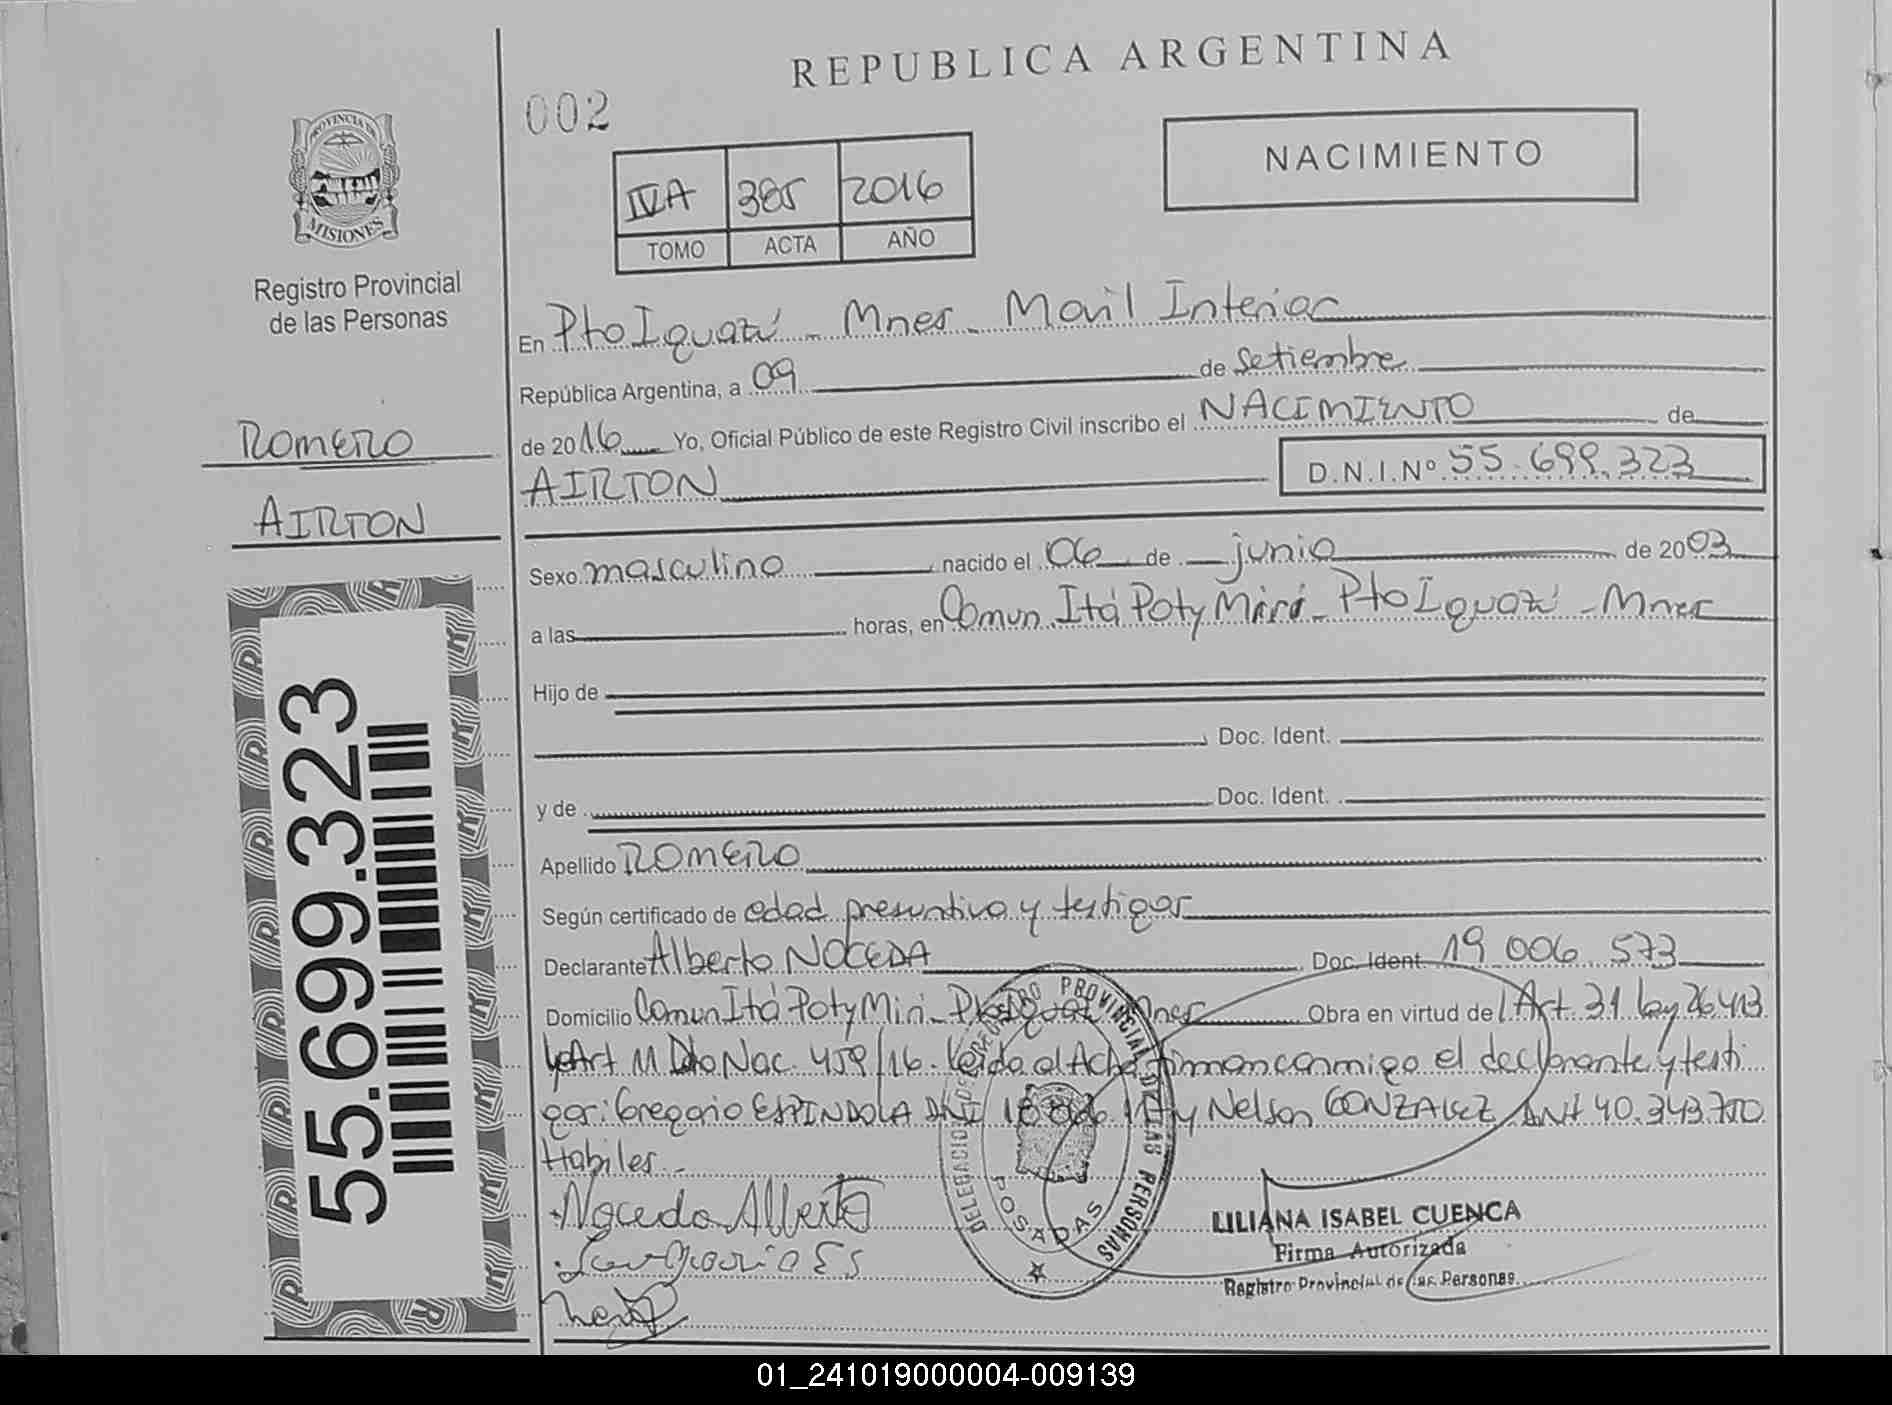 REPUBLICA ARGENTINA
002
NACIMIENTO
IVA 385 2016
TOMO ACTA AÑO
PROVINCIA DE
MISIONES
Registro Provincial
de las Personas
ROMERO
AIRTON
55.699.323
En Pto Iguazú - Mnes - Movil Interior
República Argentina, a 09 de Setiembre
de 2016 Yo, Oficial Público de este Registro Civil inscribo el NACIMIENTO de
AIRTON D.N.I.Nº 55.699.323
Sexo masculino nacido el 06 de junio de 2003
a las horas, en Comun. Itá Poty Miri - Pto Iguazú - Mnes
Hijo de
Doc. Ident.
y de Doc. Ident.
Apellido ROMERO
Según certificado de edad presuntiva y testigos
Declarante Alberto NOCEDA Doc. Ident. 19 006 573
Domicilio Comun Itá Poty Miri - Pto Iguazú Mnes Obra en virtud del Art. 31 ley 26.413
y Art 11 Dto Nac. 459/16. Leída el Acta firman conmigo el declarante y testi
gos: Gregorio ESPINDOLA DNI y Nelson GONZALEZ DNI 40.343.700
Habiles.-
Noceda Alberto
LILIANA ISABEL CUENCA
Firma Autorizada
Registro Provincial de las Personas
DELEGACION DEL REGISTRO PROVINCIAL DE LAS PERSONAS
POSADAS
01_241019000004-009139